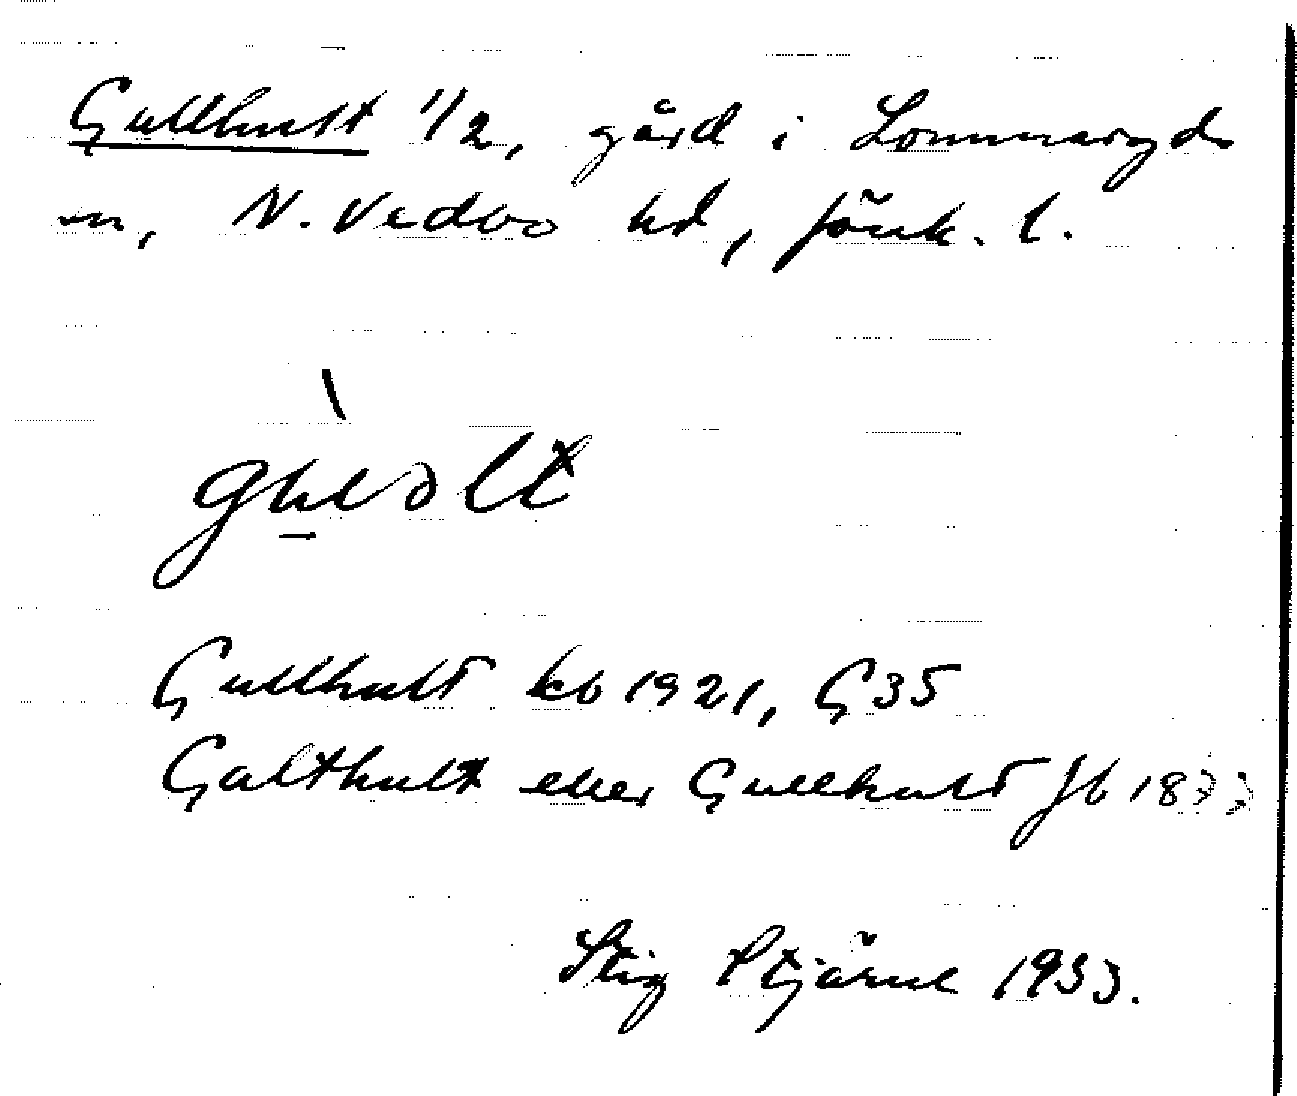 Gullhult 1/2, gård i Lommaryds
sn, N. Vedbo hd, Jönk. l.
Gullhult kb 1921, G35
Galthult eller Gullhult jb 1877
Stig Stjärne 1933.